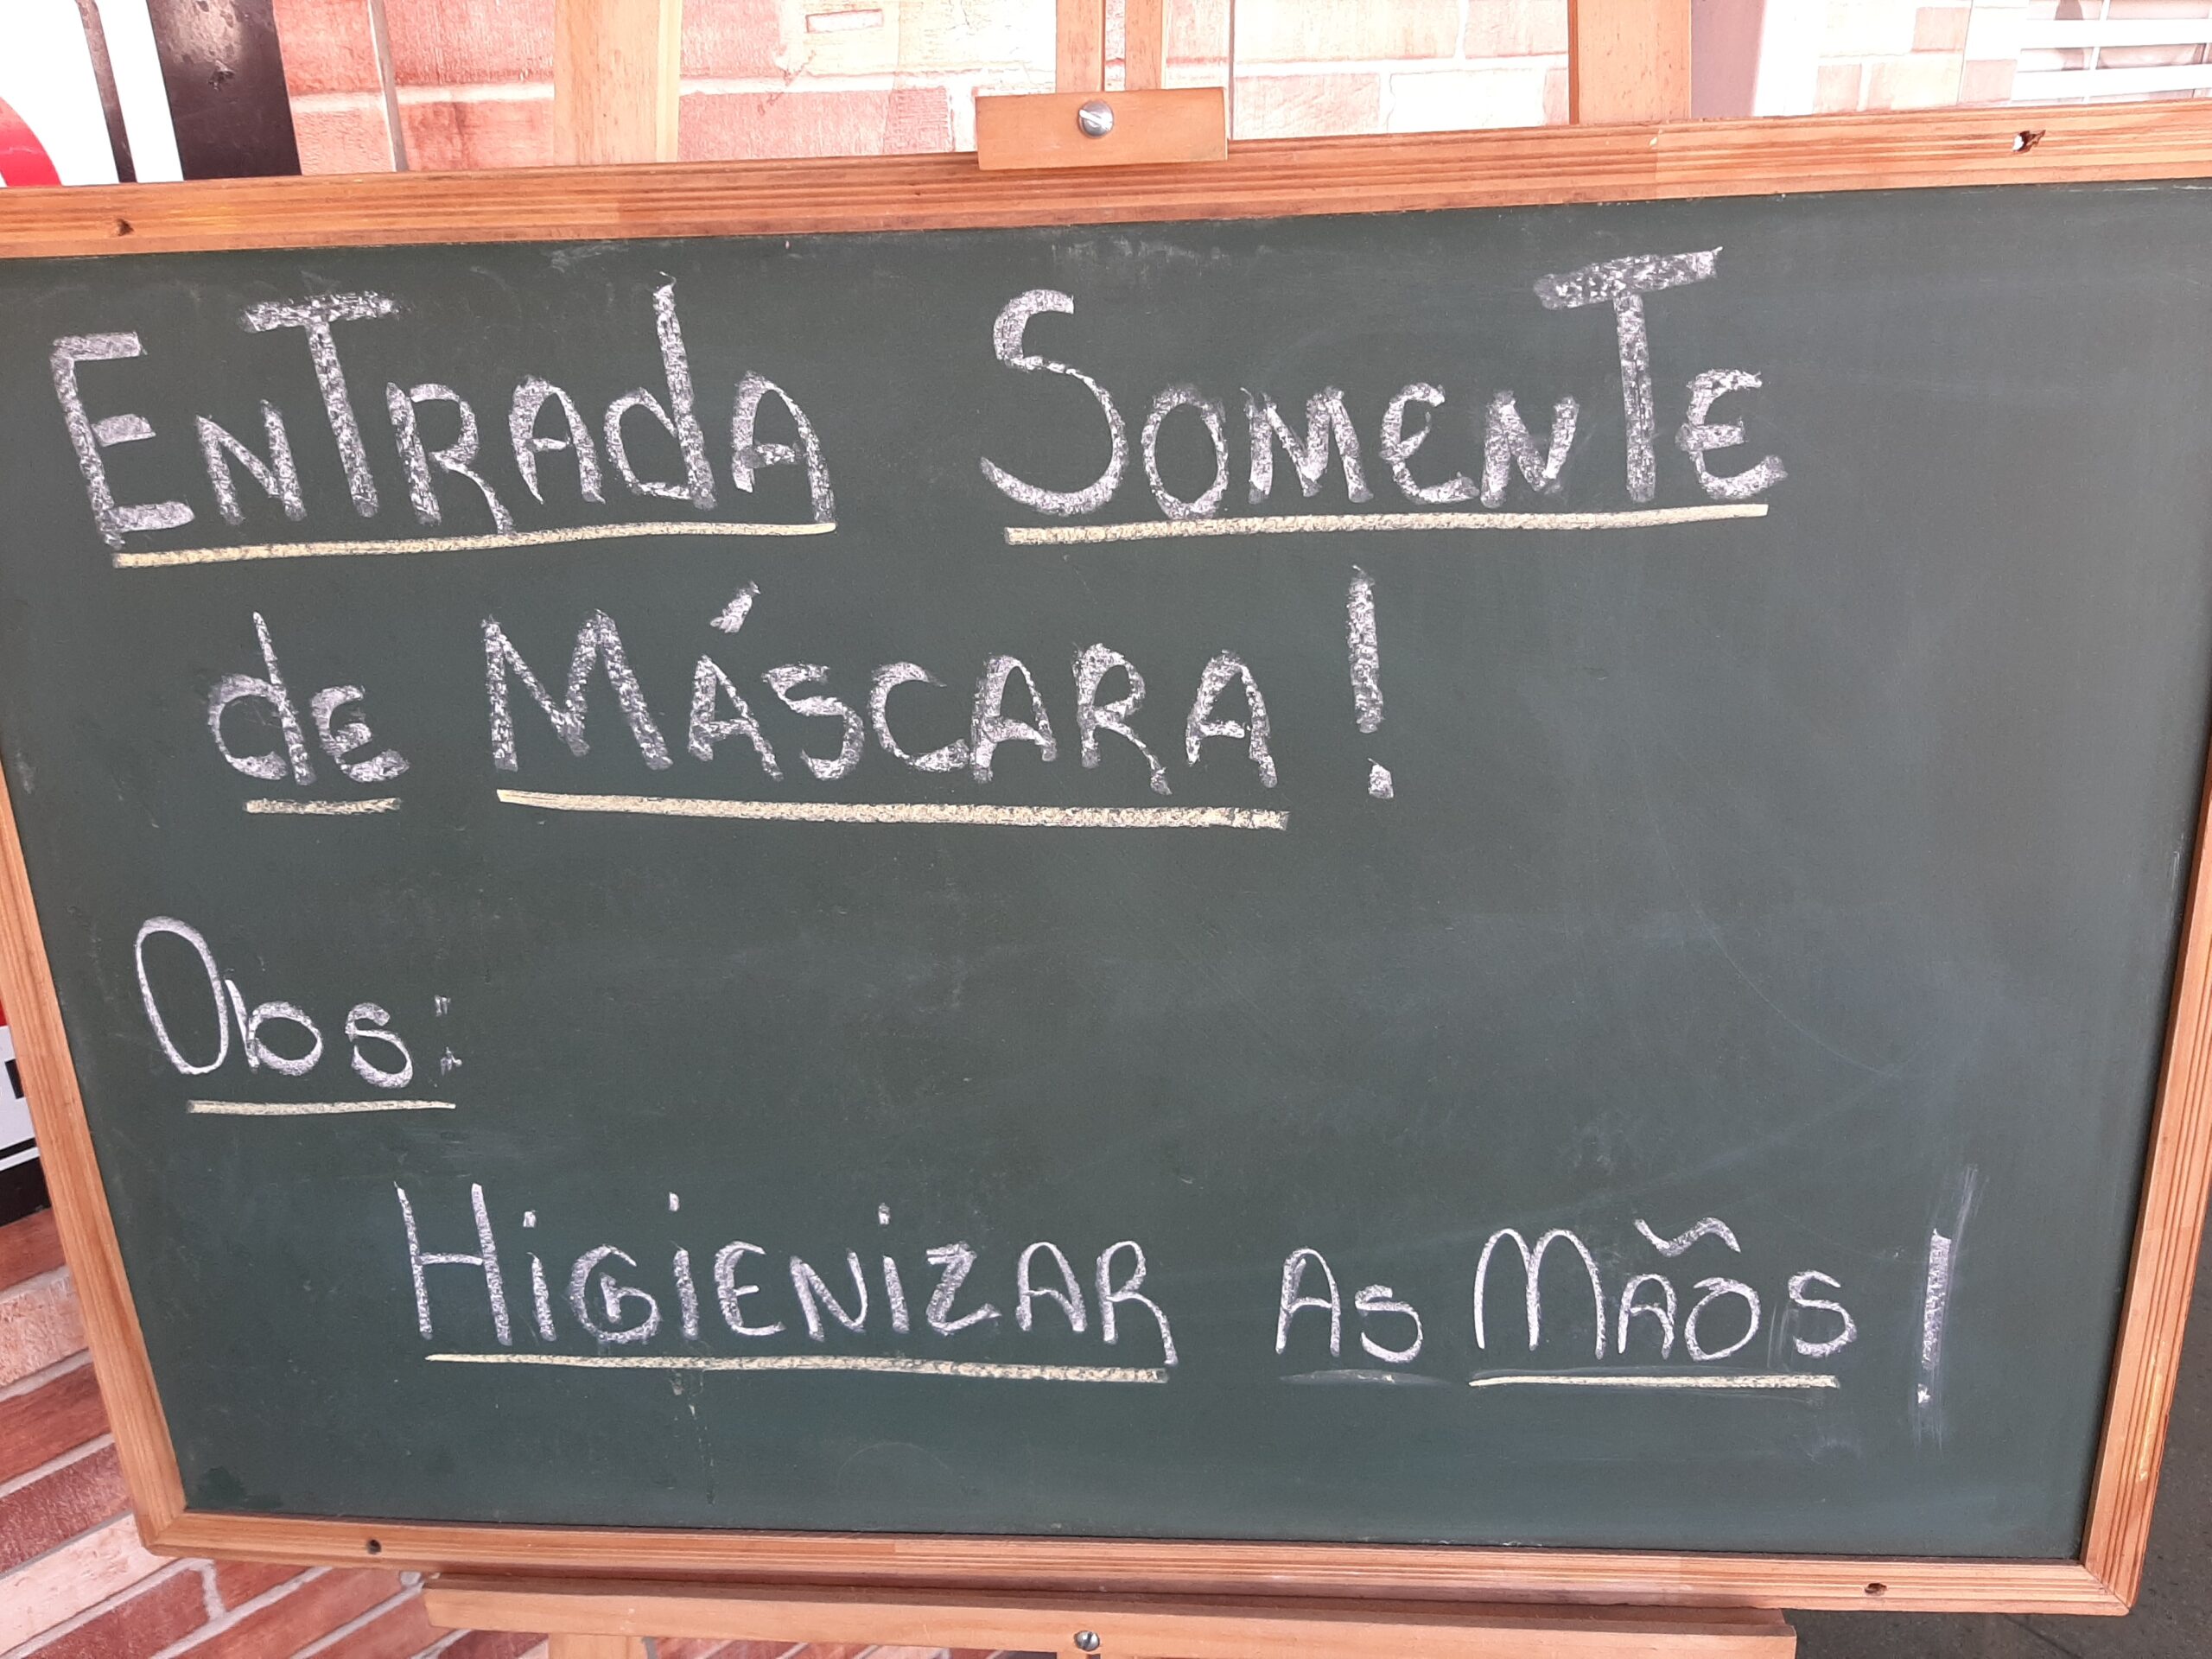 EnTRAdA SOMENTE
de MÁSCARA!
Obs:
HiGiENiZAR AS MÃOS!